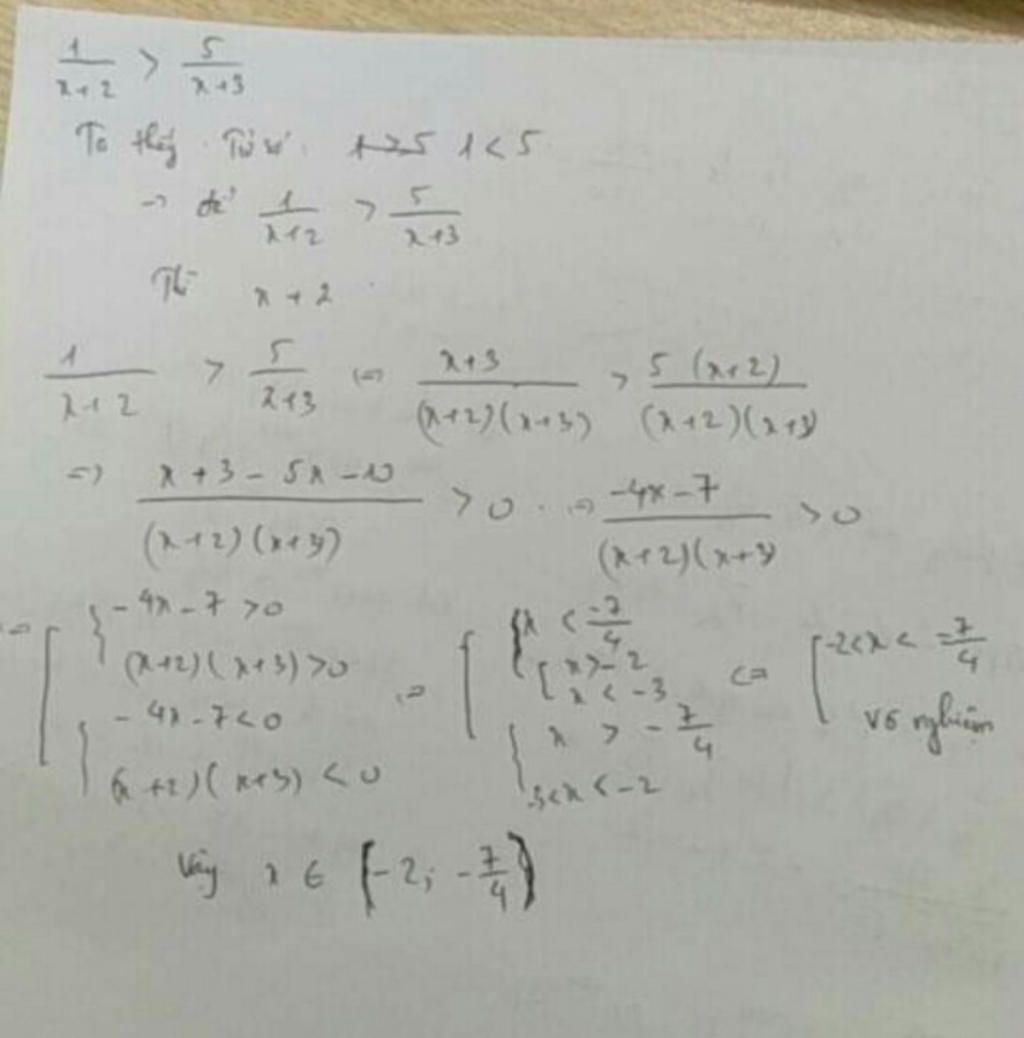 1/(x+2) > 5/(x+3)
Ta thấy Tử số 1>5 1<5
→ để 1/(x+2) > 5/(x+3)
Thì x + 2
1/(x+2) > 5/(x+3) ⇔ (x+3)/((x+2)(x+3)) > 5(x+2)/((x+2)(x+3))
=> (x+3-5x-10)/((x+2)(x+3)) > 0 ⇔ (-4x-7)/((x+2)(x+3)) > 0
⇔ [ { -4x-7 >0 ⇔ [ { x < -7/4 ⇔ [ -2<x< -7/4
(x+2)(x+3) >0 [ x>-2
x < -3
{ -4x-7<0 { x > -7/4 vô nghiệm
(x+2)(x+3) < 0 -3<x<-2
Vậy x ∈ (-2; -7/4)